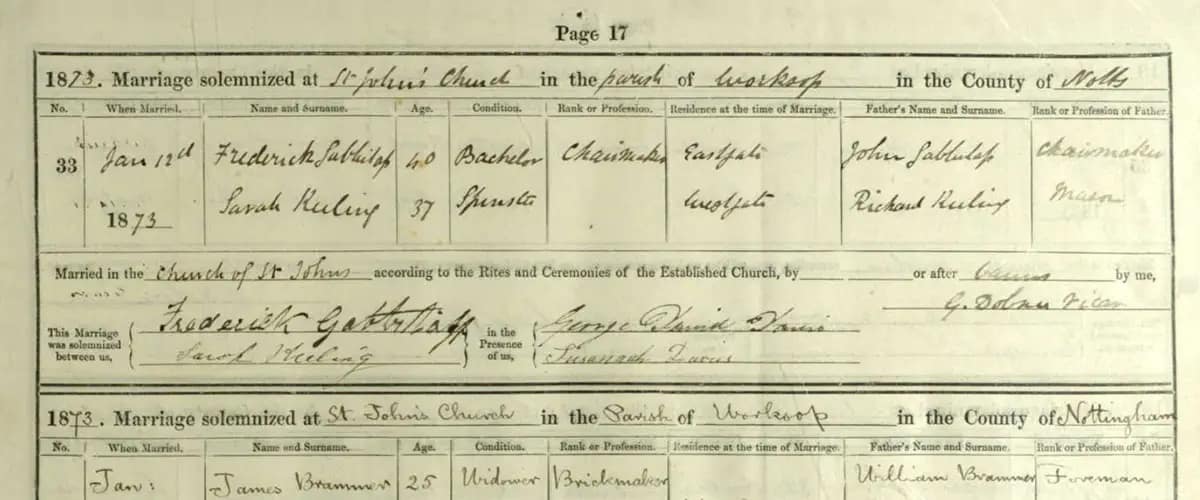 Page 17
1873. Marriage solemnized at St John's Church in the parish of Worksop in the County of Notts
No. When Married. Name and Surname. Age. Condition. Rank or Profession. Residence at the time of Marriage. Father's Name and Surname. Rank or Profession of Father.
33 Jan 12d Frederick Gabbitass 40 Bachelor Chairmaker Eastgate John Gabbitass Chairmaker
1873 Sarah Keeling 37 Spinster Westgate Richard Keeling Mason
Married in the Church of St Johns according to the Rites and Ceremonies of the Established Church, by or after Banns by me,
G. Vicar
This Marriage was solemnized between us, Frederick in the Presence of us, George David Davis
Keeling Susannah Davis
1873. Marriage solemnized at St. John's Church in the Parish of Worksop in the County of Nottingham
No. When Married. Name and Surname. Age. Condition. Rank or Profession. Residence at the time of Marriage. Father's Name and Surname. Rank or Profession of Father.
Jan: James Brammer 25 Widower Brickmaker William Brammer Foreman